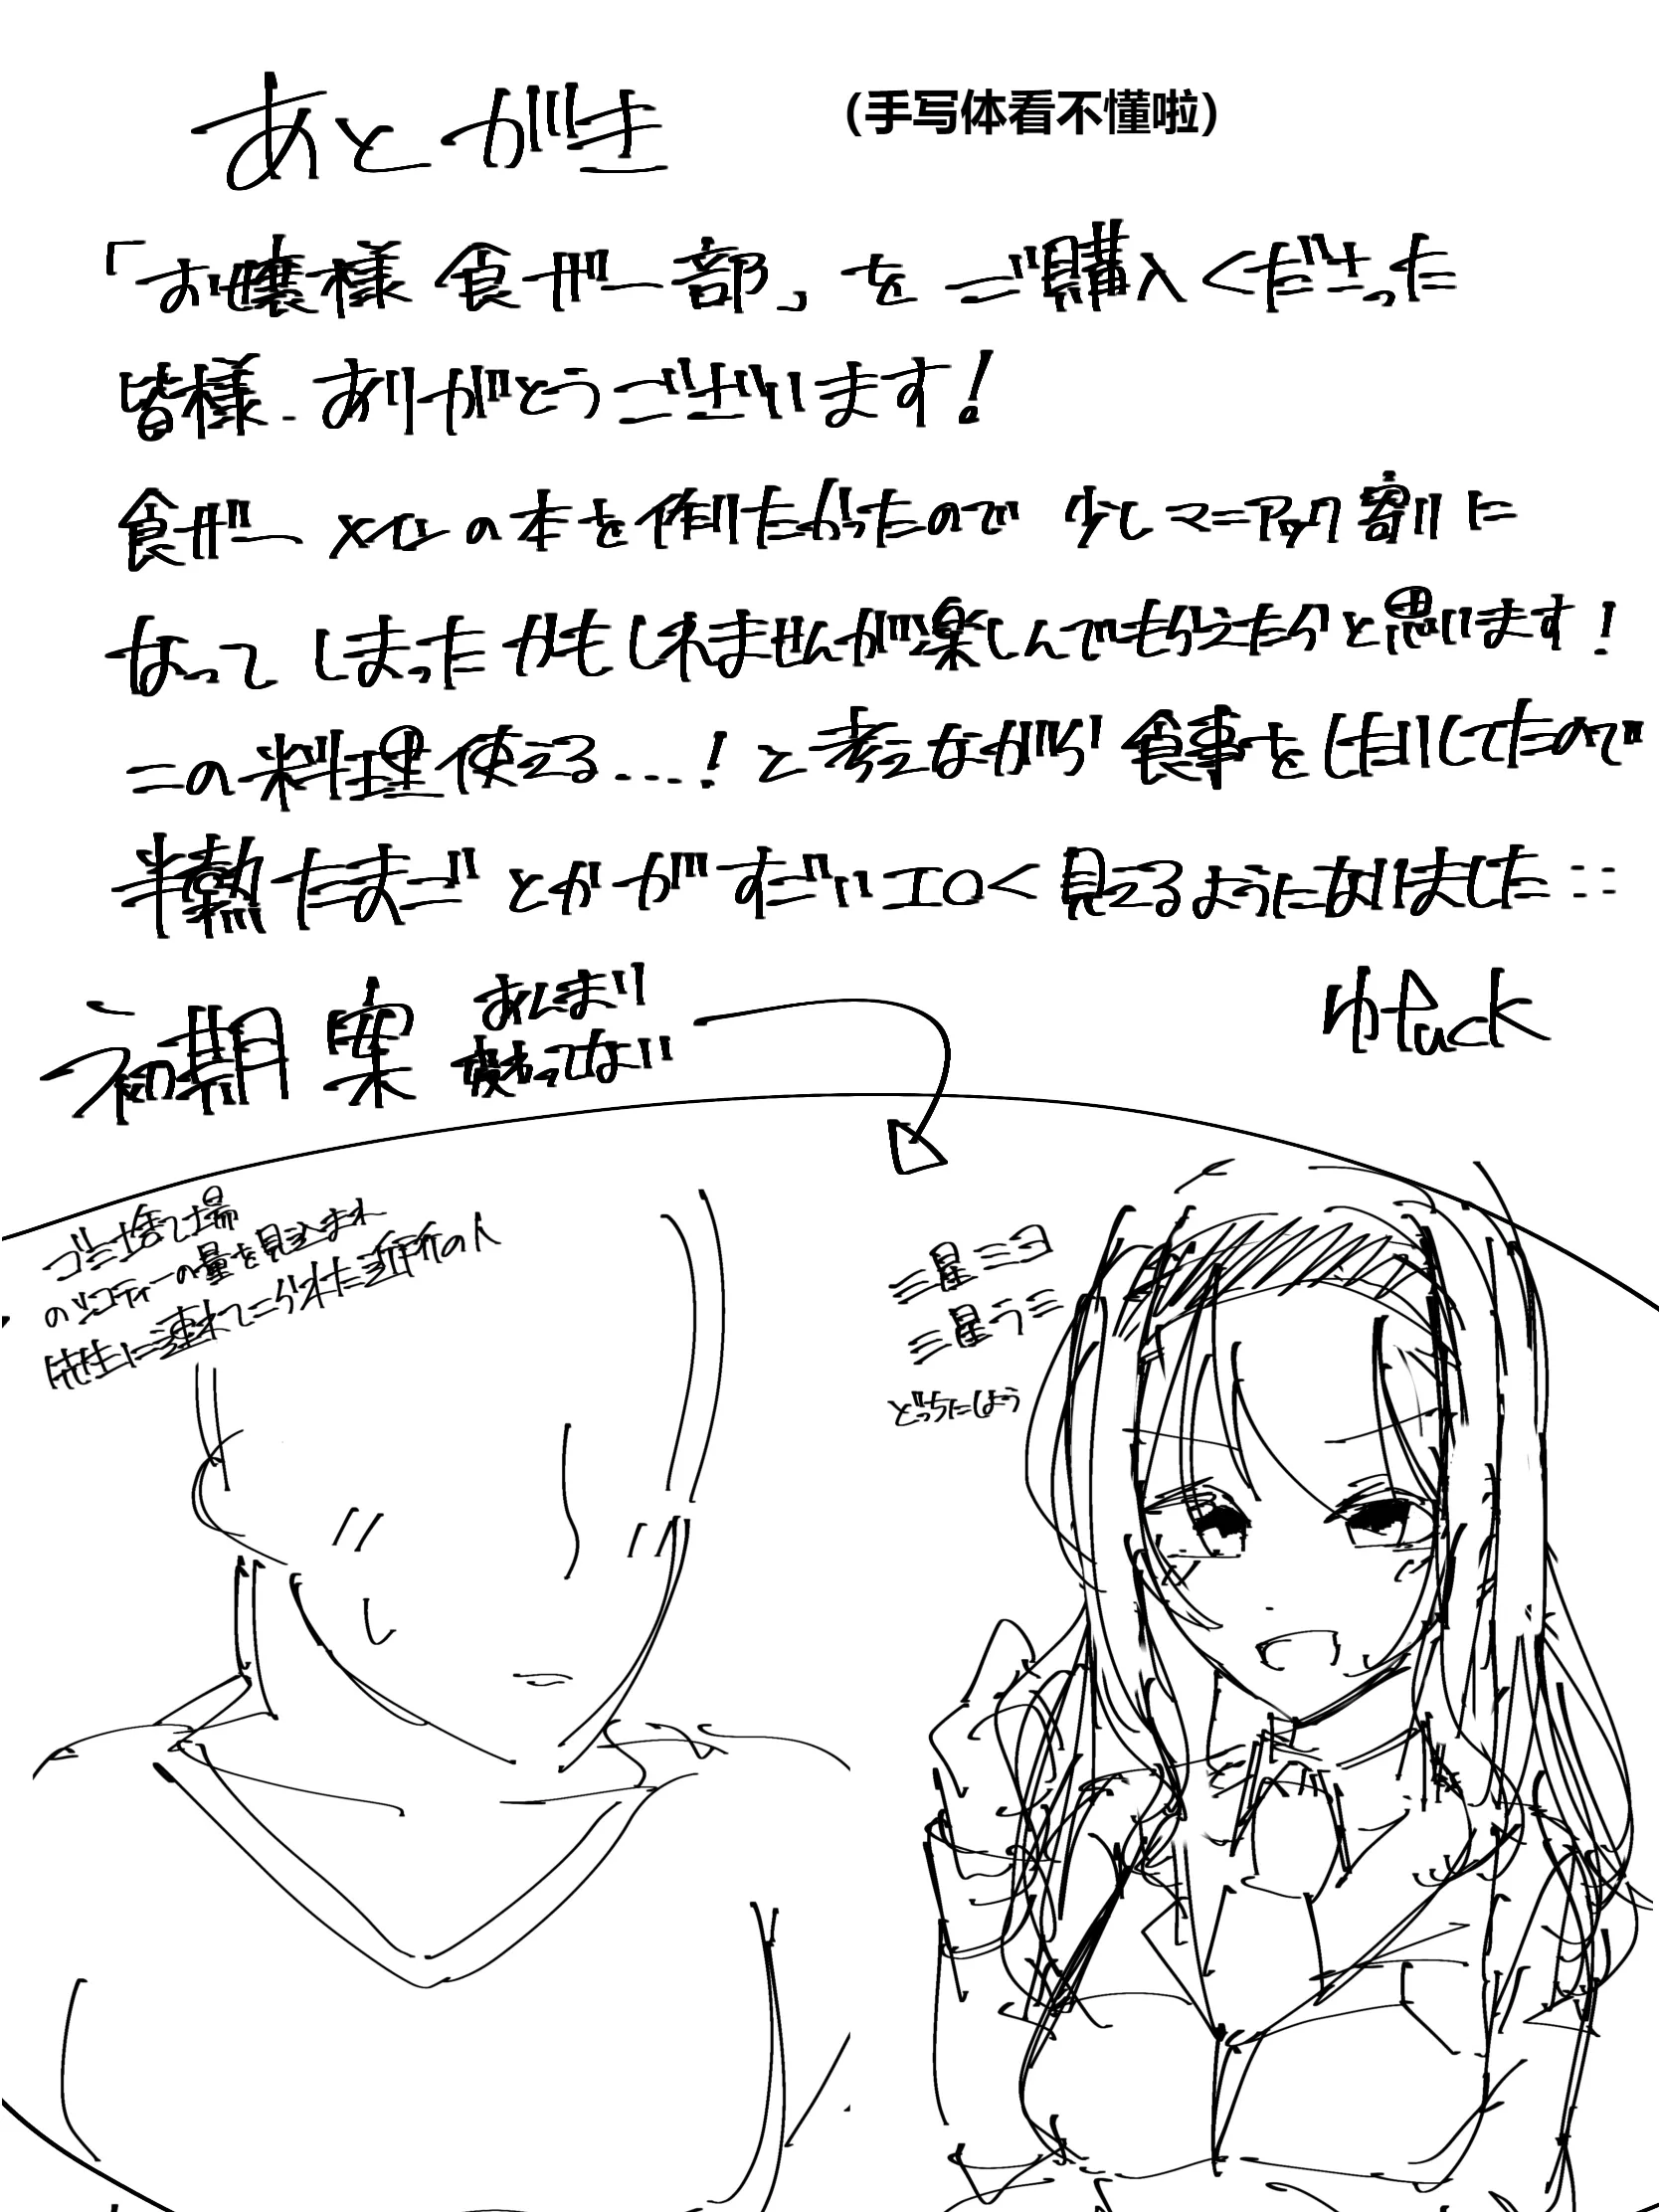 あとがき
(手写体看不懂啦)
「お嬢様食ザー部」をご購入くださった
皆様、ありがとうございます!
食ザーメインの本を作りたかったので少しマニアック寄りに
なってしまったかもしれませんが楽しんでもらえたらと思います!
この料理使える...!と考えながら食事をしたりしてたので
半熟たまごとかがすごいエロく見えるようになりました::
ゆPuck
初期案
あんまり
変わってない
ゴミ捨て場
のジコティーの量を見込まれ
先生に連れてこられた近所の人
三星ミヨ
三星うミ
どっちにしよう